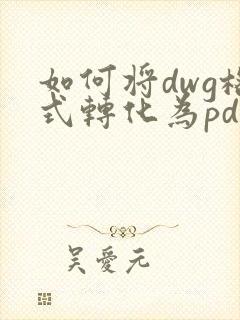 如何将dwg格
式轉化為pd
吴愛元